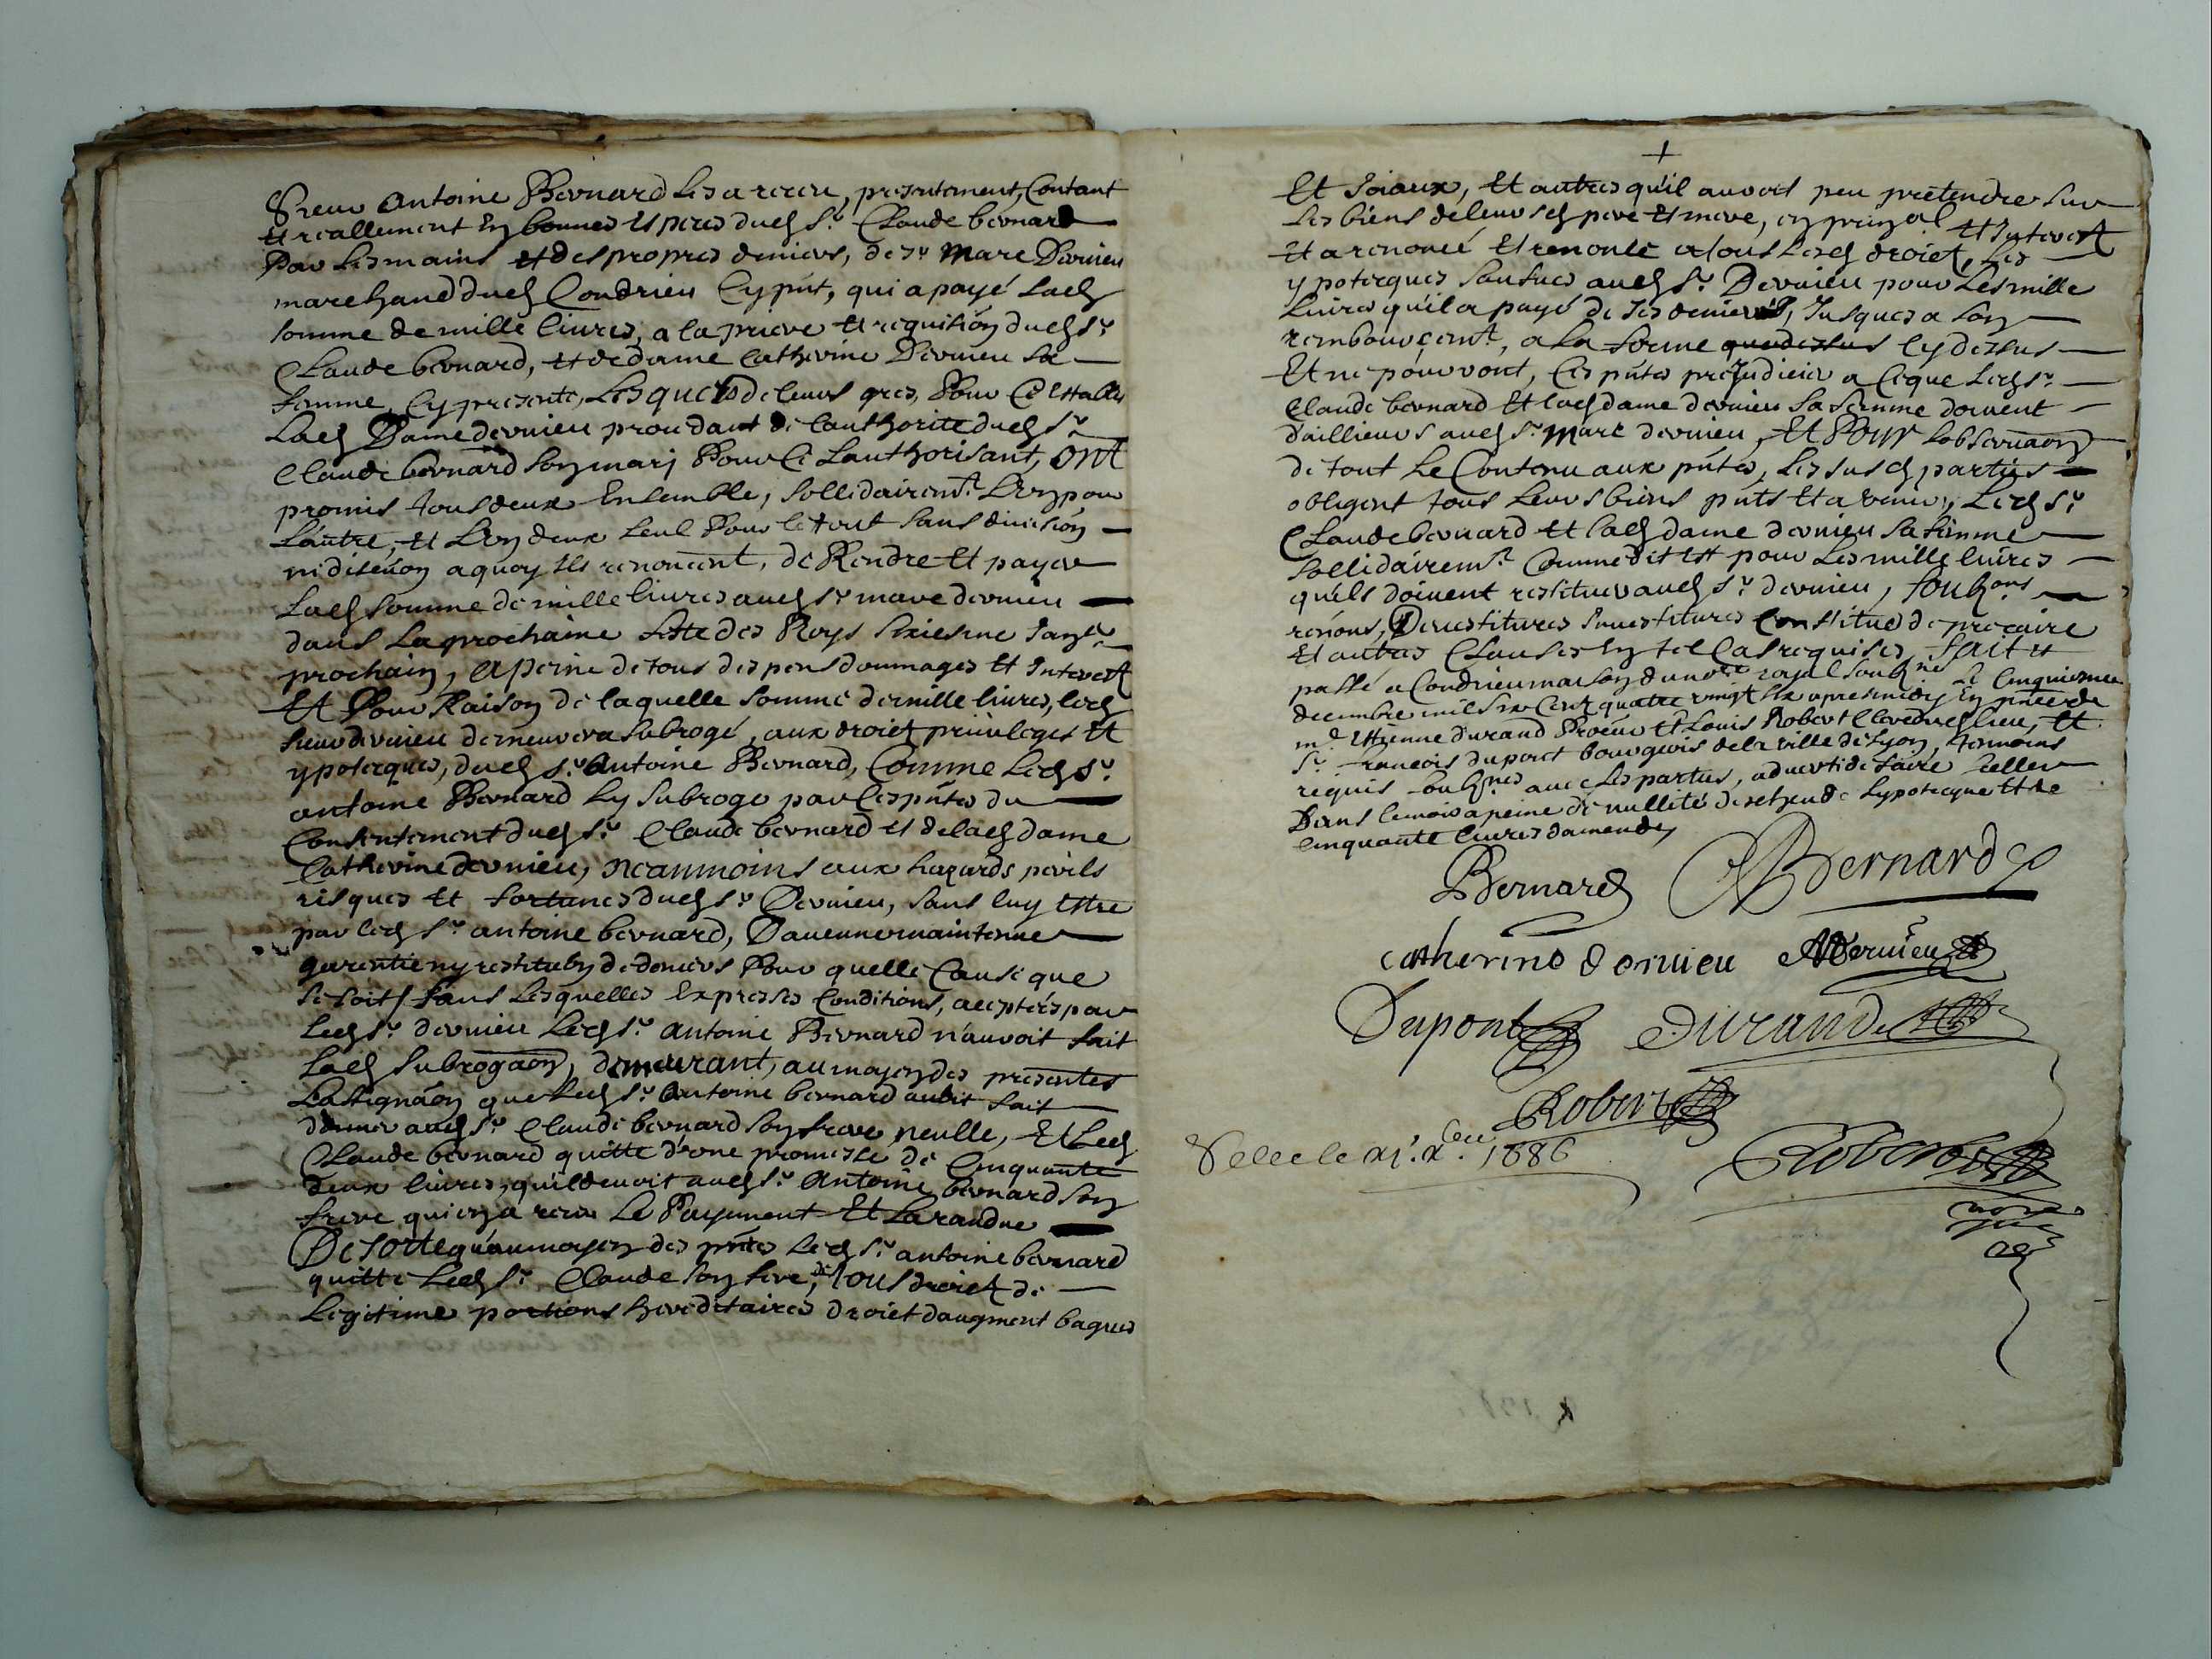 Sieur Antoine Bernard les a receu, presentement, Contant
et reallement en bonnes especes dud Sr. Claude bernard
Par les mains et des propres deniers, de sr Marc Dervieu
marchand dud Condrieu cy pnt, qui a payé lad
somme de mille livres, a la priere et requition dud sr
Claude bernard, et de dame Catherine Dervieu sa
femme cy presente, Lesquels de leurs gres, Pour Ce
Lad Dame dervieu procedant de lauthorite dud sr
Claude bernard son mary Pour Ce Lauthorisant, ont
promis tous deux Ensemble, sollidairemt. L'un pour
Lautre, et L'un deux seul Pour le tout sans division
ni discuon a quoy Ils renoncent, de Rendre Et payer
Lad somme de mille livres aud sr marc dervieu
dans La prochaine feste des Roys sixiesme Janvr
prochain, a peine de tous despens doumages Et Interest
Et Pour Raison de laquelle somme de mille livres, led
sieur dervieu demeurera subrogé, aux droict privileges Et
ypotecques, dud sr. Antoine Bernard, Comme Led sr.
antoine Bernard Ly subroge par Ces pntes du
Consentement dud sr. Claude bernard et de lad dame
Catherine dervieu, neanmoins aux hazards perils
risques et fortunes dud sr Dervieu, sans luy Estre
par led sr. antoine bernard, Daucune maintenue
garentie ny restituon de deniers Pour quelle Cause que
se soit / sans Lesquelles Expresses Conditions, acceptées par
Led sr. dervieu Led sr. antoine Bernard n'auroit fait
Lad subrogaon, demeurant, au moyen des presentes
Lassignaon que Led sr. Antoine bernard auoit fait
donner aud sr. Claude bernard son frere, neulle, Et Led
Claude bernard quitte d'une promesse de Cinquante
deux livres, quil devoit aud sr. Antoine bernard son
frere qui en a receu Le Payement Et La randue
De sorte qu'au moyen des pntes Led sr antoine bernard
quitte Led sr. Claude son frere, de tous droict de
Legitime portions hereditaires droict daugment bagues
+
Et Joiaux, Et autres qu'il auroit peu pretendre sur
Les biens de leurs d pere Et mere, en prinpal Et Interest
Et a renoncé Et renonce a tous Lesd droict, Les
ypotecques saufues aud sr. Dervieu pour Les mille
livres qu'il a payé de ses deniers, Jusques a son
rembourcemt, a La forme quedessus Cy dessus
Et ne pourront, Ces pntes prejudicier a Ceque Led sr.
Claude bernard Et lad dame dervieu sa femme doivent
d'aillieurs aud sr. Marc dervieu, Et Pour Lobservaon
de tout Le Contenu aux pntes, Les susd parties
obligent tous Leurs biens pnts Et a venir, Led sr
Claude bernard et lad dame dervieu sa femme
sollidairemt. Comme dit est pour Les mille livres
quils doivent restituer aud sr. dervieu, soubons
renons, Devestitures Investitures Constitues de precaire
Et autres Clauses En tel Cas requises, fait et
passé a Condrieu maison du nore royal soubné Le Cinquiesme
decembre mil six Cent quatre vingt six apres midy En pnce de
me Estienne durand Procur Et Louis Robert Clerc dud lieu, Et
sr. francois dupont bourgeois de la ville de Lyon, tesmoins
requis soubnes avec Les parties, adverti de faire seeller
Dans le mois a peine de nullité desetheude hypotecque Et de
Cinquante livres damende
Bernard Bernard
catherine dervieu MDervieu
Dupont Durand
Robert
Selee le xi. xbre 1686
Robert
nore